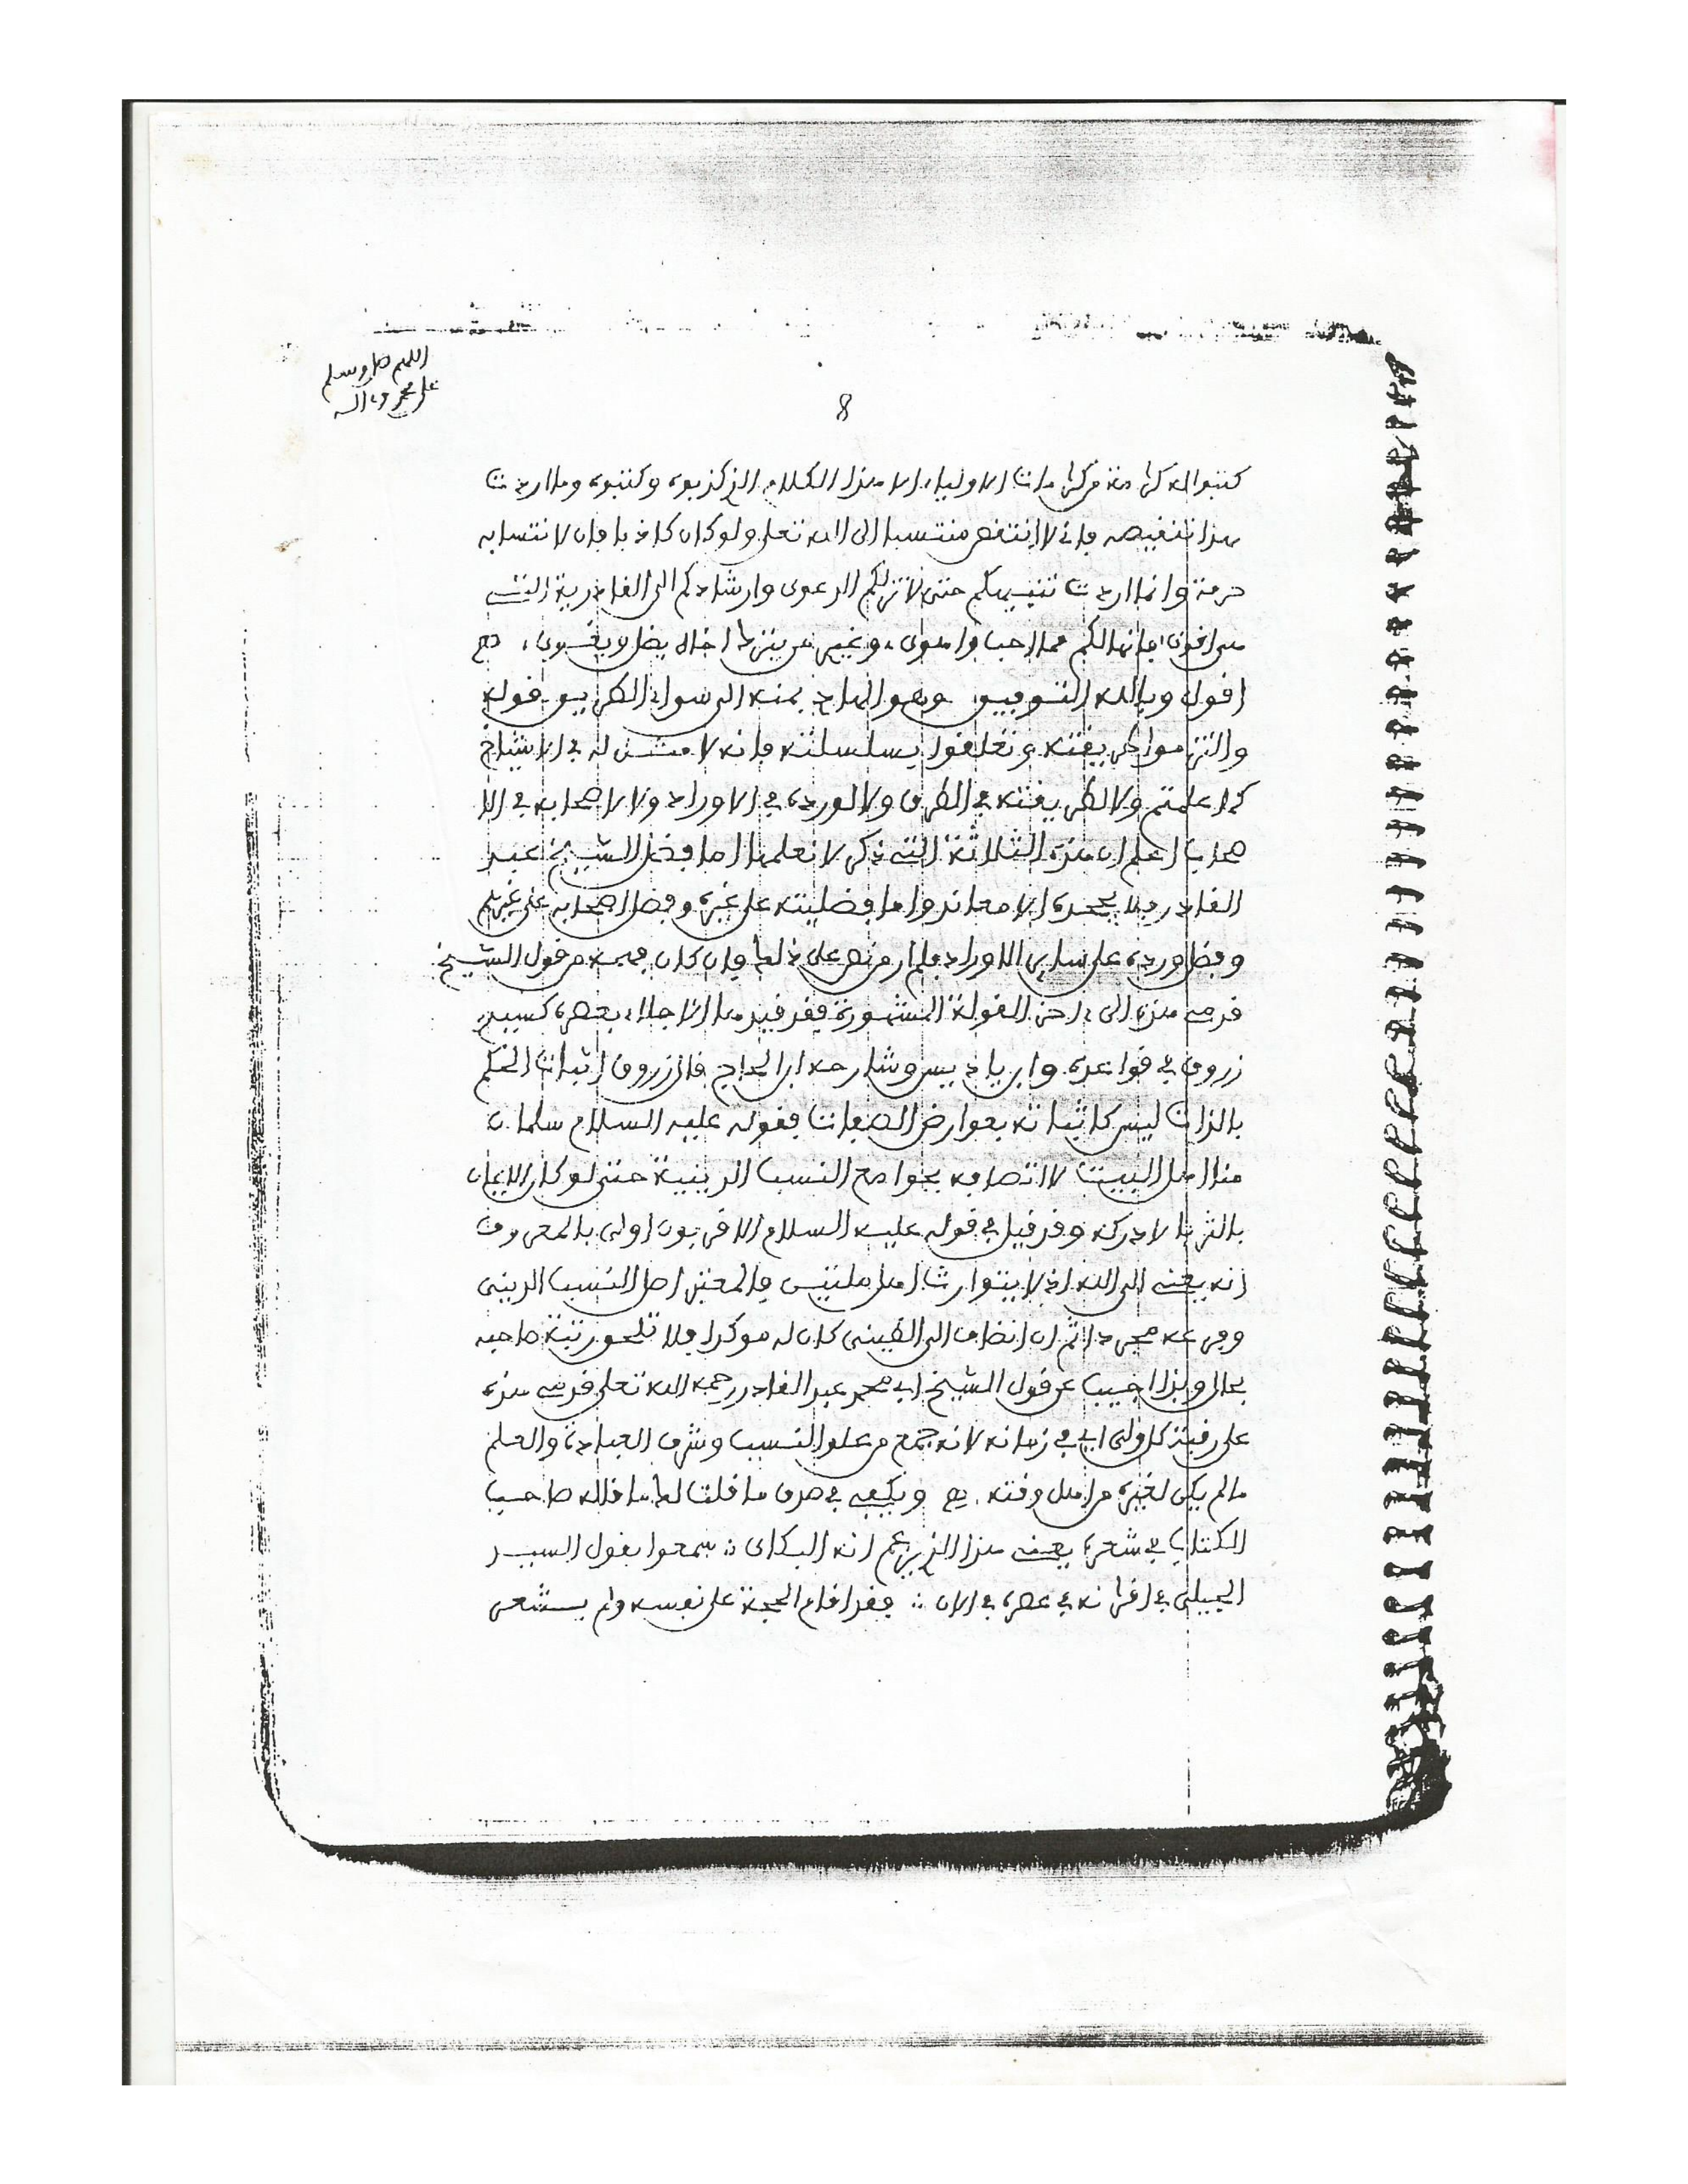 اللهم صل وسلم
على محمد وآله
8
كتبوا له كرامة من كرامات الاولياء الا هذا الكلام الذي كذبوه وكتبوه وما اردت
بهذا تنقيصه فاني لا انتقص منتسبا الى الله تعلى ولو كان كاذبا فان لانتسابه
حرمة وانما اردت تنبيهكم حتى لا تزلكم الدعوى وارشادكم الى القادرية التي
هي اقوى فانها لكم مما احب واهوى وغير من ينزلها اخاله يضل ويغوى
اقول وبالله التوفيق وهو الهاد بمنه الى سواء الطريق قوله
والتزموا طريقته وتعلقوا بسلسلته فانه لا مثل له في الاشياخ
كما علمتم ولا لطريقته في الطرق ولا لورده في الاوراد ولا لاصحابه في الا
صحاب اعلم ان هذه الثلاثة التي ذكر لا نعلمها اما فضل الشيخ عبد
القادر فلا يجحده الا معاند واما فضليته على غيره وفضل اصحابه على غيرهم
وفضل ورده على ساير الاوراد فلم ار من نص على ذلك فان كان فهمه من قول الشيخ
قدمي هذه الى ءاخر القولة المشهورة فقد قيدها الاجلاء بعصره كسيد
زروق في قواعده وابن باديس وشارحه ابن الحاج قال زروق اثبات الحكم
بالذات ليس كاثباته بعوارض الصفات فقوله عليه السلام سلمان
منا اهل البيت لاتصافه بجوامع النسب الدينية حتى لو كان الايمان
بالثريا لادركه وقد قيل في قوله عليه السلام الاقربون اولى بالمعروف
انه يعني الى الله اذ لا يتوارث اهل ملتين فالمعتبر اصل النسب الديني
وفرعه مجردا ثم ان انضاف الى الطيني كان له موكدا فلا تلحق رتبة صاحبه
بحال وبذا اجيب عن قول الشيخ ابي محمد عبد القادر رحمه الله تعلى قدمي هذه
على رقبة كل ولي اي في زمانه لانه جمع من علو النسب وشرف العبادة والعلم
ما لم يكن لغيره من اهل وقته . اهـ ويكفيه في صدق ما قلت لك ما قاله صاحب
الكتاب في شعره يعني هذا الذي زعم انه البكاي ∴ سمعوا بقول السيد
الجيلي في اقرانه في عصره في الان ∴ فقد اقام الحجة على نفسه ولم يشعر